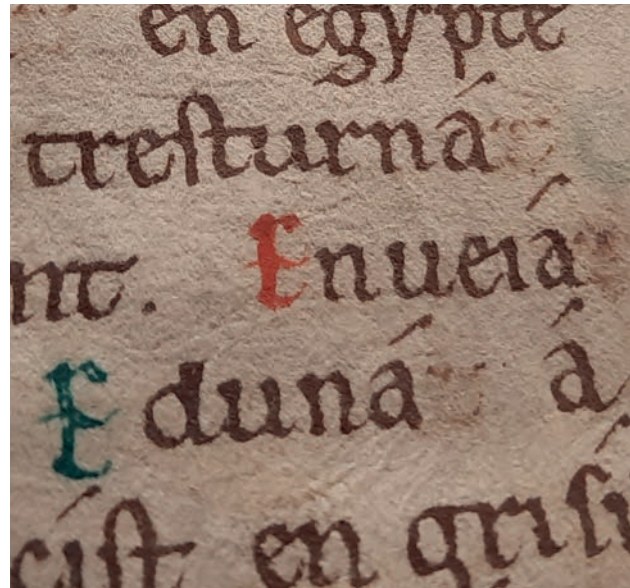 en egypte
tresturná
nt. Enueiá
E duná á
císt en grisi